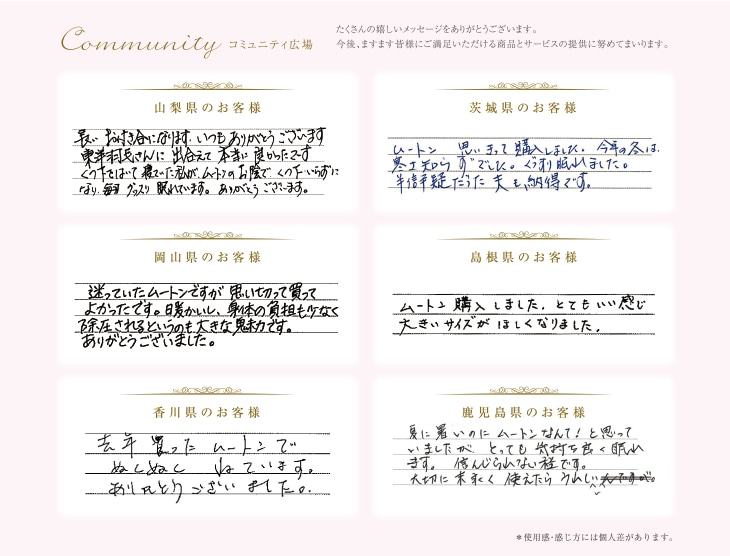 Community コミュニティ広場
たくさんの嬉しいメッセージをありがとうございます。
今後、ますます皆様にご満足いただける商品とサービスの提供に努めてまいります。
山梨県のお客様
長い お付き合になります。いつもありがとうございます
東洋羽毛さんに 出合えて 本当に 良かったです
くつ下をはいて 寝ていた私が、ムートンのお陰で、くつ下いらずに
なり、毎日 グッスリ 眠れています。ありがとうございます。
茨城県のお客様
ムートン 思いきって購入しました。今年の冬は、
寒さ知らずでした。ぐっすり眠れました。
半信半疑だった夫も納得です。
岡山県のお客様
迷っていたムートンですが 思い切って買って
よかったです。暖かいし、身体の負担も少なく
除圧されるというのも大きな魅力です。
ありがとうございました。
島根県のお客様
ムートン購入しました。とてもいい感じ
大きいサイズが ほしくなりました。
香川県のお客様
去年 買った ムートンで
ぬくぬく ねています。
ありがとうございました。
鹿児島県のお客様
夏に暑いのに ムートンなんて！と思って
いましたが とっても 気持ち良く眠れ
ます。信んじられない程です。
大切に 末永く 使えたら うれしい
＊使用感・感じ方には個人差があります。